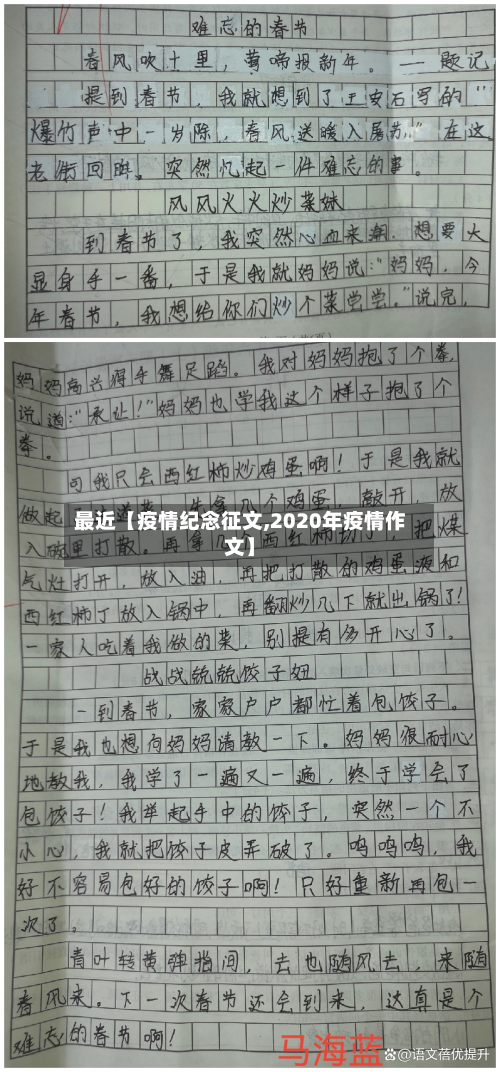 难忘的春节
春风吹十里，莺啼报新年。——题记
提到春节，我就想到了王安石写的“
爆竹声中一岁除，春风送暖入屠苏。”在这
老街回眸。突然忆起一件难忘的事。
风风火火炒菜妹
到春节了，我突然心血来潮，想要大
显身手一番，于是我就妈妈说：“妈妈，今
年春节，我想给你们炒个菜尝尝。”说完，
妈妈高兴得手舞足蹈。我对妈妈抱了个拳，
说道：“承让！”妈妈也学我这个样子抱了个
拳。
可我只会西红柿炒鸡蛋啊！于是我就
做起 先拿几个鸡蛋，敲开，放
入碗里打散。再拿几个西红柿切丁，把煤
最近【疫情纪念征文,2020年疫情作
文】
气灶打开，放入油，再把打散的鸡蛋液和
西红柿丁放入锅中，再翻炒几下就出锅了！
一家人吃着我做的菜，别提有多开心了。
战战兢兢饺子妞
一到春节，家家户户都忙着包饺子。
于是我也想向妈妈请教一下。妈妈很耐心
地教我，我学了一遍又一遍，终于学会了
包饺子！我举起手中的饺子，突然一个不
小心，我就把饺子皮弄破了。呜呜呜，我
好不容易包好的饺子啊！只好重新再包一
次了。
青叶转黄弹指间，去也随风去，来随
春风来。下一次春节还会到来，这真是个
难忘的春节啊！
马海蓝
@语文蓓优提升